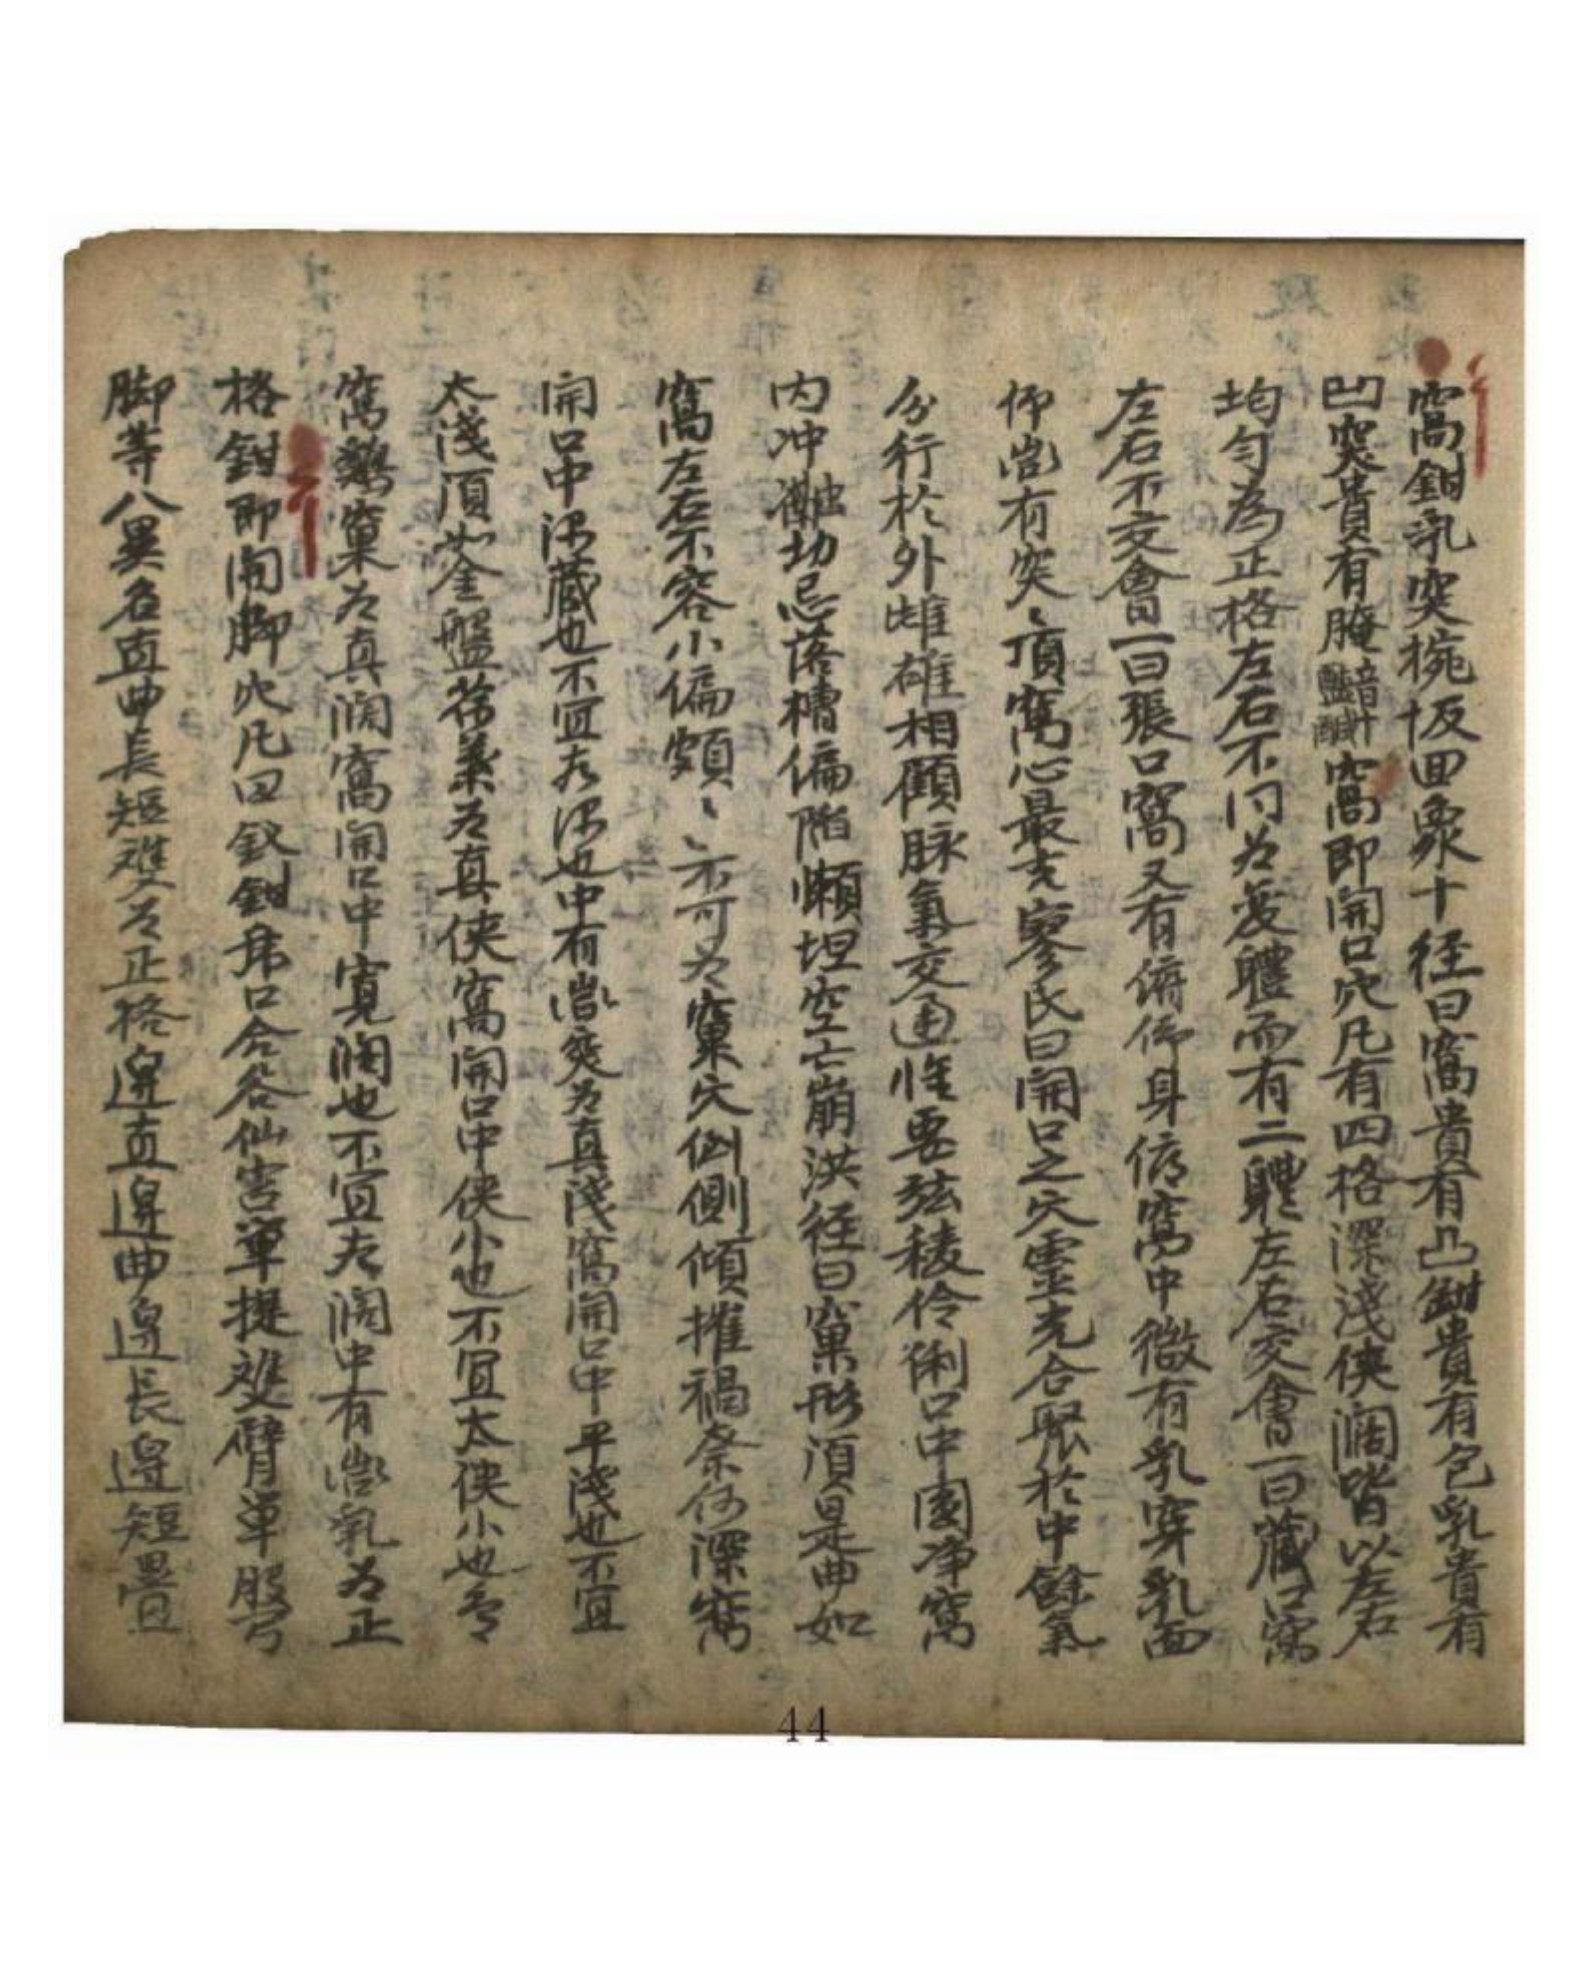 窩鉗乳突椀坂四象十径曰窩貴有凸鉗貴有包乳貴有
凹突貴有腌窩即開口穴凡有四格深淺俠濶皆以左右
均勻為正格左右不同为変軆而有二軆左右交會一曰藏口窩
左右不交會一曰張口窩又有俯仰身俯窩中微有乳穿乳面
仰岩有突〻頂窩心最克廖氏曰開口之穴霊光合聚於中餘氣
分行於外雌雄相顧脉氣交通惟要弦稜伶俐口中圓净窩
内冲融切忌落槽偏陷懶坦空亡崩洪径曰窠形湏是曲如
窩左右不容小偏頗〻〻不可为窠穴倒側傾摧禍奈何深窩
開口中深藏也不宜太深也中有突为真淺窩開口中平淺也不宜
太淺湏如金盤荷葉为真俠窩開口中俠小也不宜太俠小也
窩窠为真濶窩開口中寬濶也不宜太濶中有乳为正
格鉗即開脚穴凡曰釵鉗虎口合谷仙宮單提双臂單股弓
脚等八異名直曲長短双为正格邉直邉曲邉長邉短疊
44